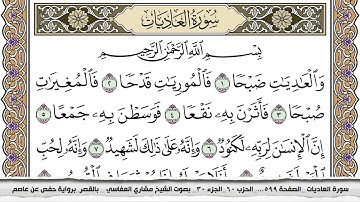 سُورَةُ العَادِيَاتِ
بِسْمِ اللَّهِ الرَّحْمَٰنِ الرَّحِيمِ
وَالْعَٰدِيَٰتِ ضَبْحًا ١ فَالْمُورِيَٰتِ قَدْحًا ٢ فَالْمُغِيرَٰتِ
صُبْحًا ٣ فَأَثَرْنَ بِهِۦ نَقْعًا ٤ فَوَسَطْنَ بِهِۦ جَمْعًا ٥
إِنَّ الْإِنسَٰنَ لِرَبِّهِۦ لَكَنُودٌ ٦ وَإِنَّهُۥ عَلَىٰ ذَٰلِكَ لَشَهِيدٌ ٧ وَإِنَّهُۥ لِحُبِّ
سورة العاديات الصفحة ٥٩٩ ... الحزب ٦٠ الجزء ٣٠ بصوت الشيخ مشاري العفاسي . بالقصر برواية حفص عن عاصم